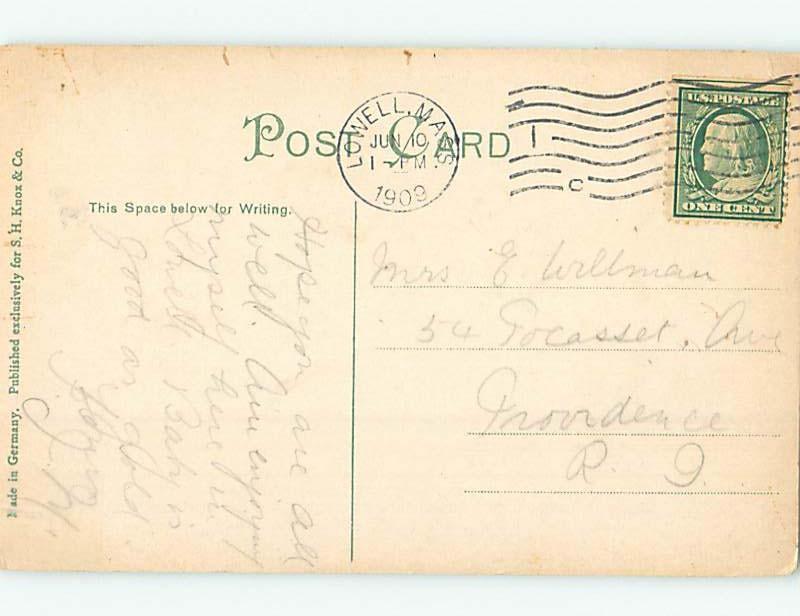 POST CARD
LOWELL, MASS
JUN 10
1 - PM
1909
1
C
U.S. POSTAGE
ONE CENT
This Space below for Writing.
Hope you are all
well. Am enjoying
myself here in
Lowell. Baby is
good as gold.
Mrs E Willman
54 Pocasset. Ave
Providence
R. I.
Made in Germany. Published exclusively for S. H. Knox & Co.